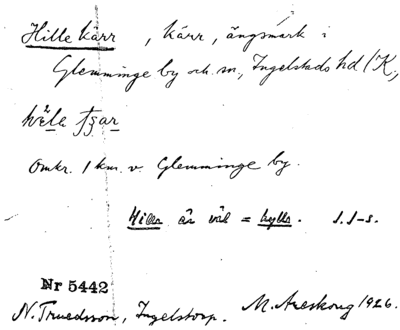 Hille kärr, kärr, ängsmark i
Glemminge by och sn, Ingelstads hd (K,
Omkr. 1 km. v. Glemminge by.
Hille är väl = hylle. J. J-s.
Nr 5442
N. Truedsson, Ingelstorp. M. Areskoug 1926.